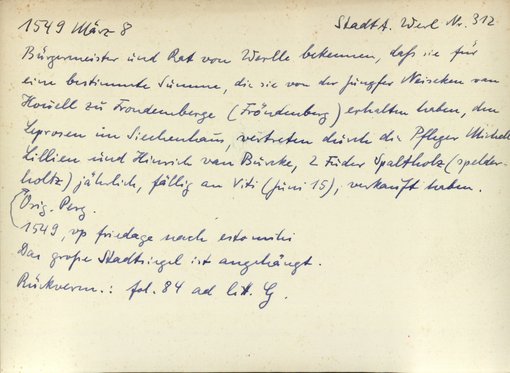 1549 März 8 StadtA. Werl Nr. 312
Bürgermeister und Rat von Werlle bekennen, daß sie für
eine bestimmte Summe, die sie von der Jungfer Neiseken van
Houell zu Frondemberge (Fröndenberg) erhalten haben, den
Leprosen im Siechenhaus, vertreten durch die Pfleger Michell
Lillien und Hinrich van Büreke, 2 Fuder Spaltholz (spelder-
holtz) jährlich, fällig an Viti (Juni 15), verkauft haben.
Orig. Perg.
(1549, vp friedage nach estomihi
Das große Stadtsiegel ist angehängt.
Rückverm.: fol. 84 ad lit. G.